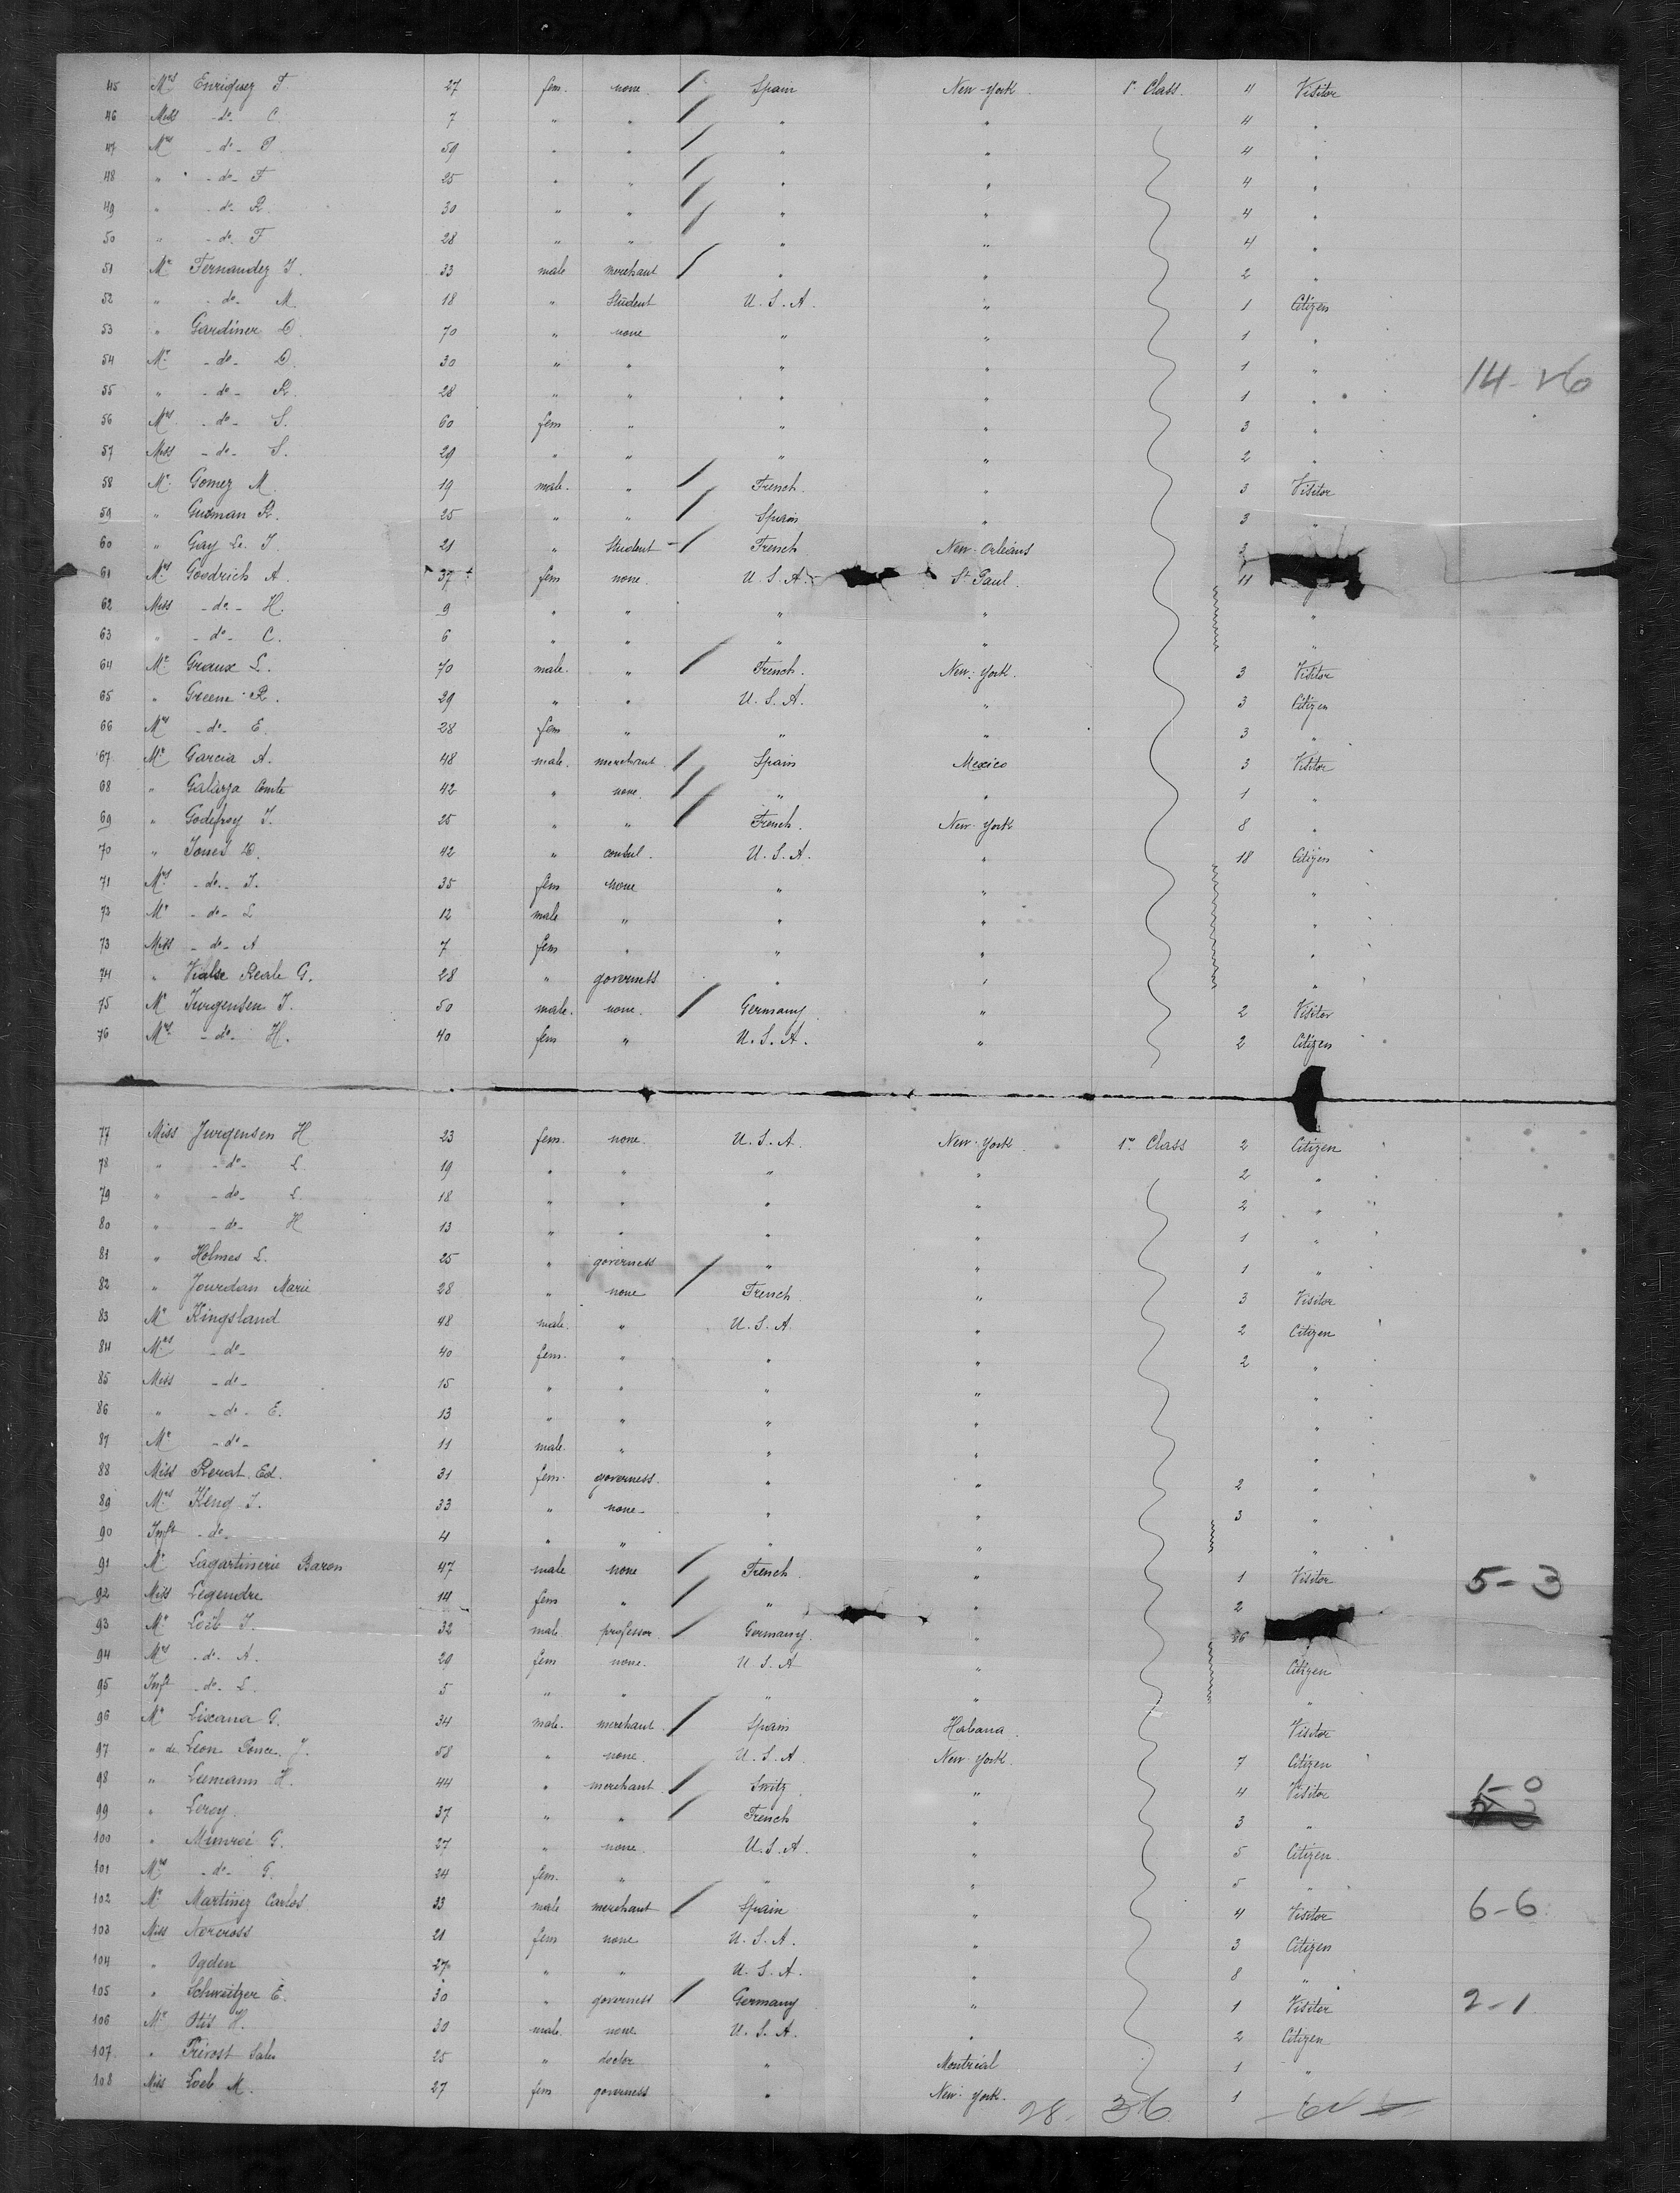 45 Mrs Enriquez F. 27 fem. none / Spain New-York 1r Class. 4 Visitor
46 Miss -do- C. 7 " " / " " 4 "
47 Mrs -do- P. 59 " " / " " 4 "
48 " -do- F 25 " " / " " 4 "
49 " -do- R. 30 " " / " " 4 "
50 " -do- F 28 " " / " " 4 "
51 Mr Fernandez J. 33 male merchant / " " 2 "
52 " -do- M 18 " Student U.S.A. " 1 Citizen
53 " Gardiner D. 70 " none " " 1 "
54 Mr -do- D. 30 " " " " 1 " 14-26
55 " -do- R. 28 " " " " 1 "
56 Mrs -do- S. 60 fem " " " 3 "
57 Miss -do- S. 29 " " " " 2 "
58 Mr Gomez M 19 male. " / French. " 3 Visitor
59 " Guzman R. 25 " " / Spain " 3 "
60 " Gay Le. J. 21 " Student / French New-Orleans 3
61 Mrs Goodrich A. 37 fem none. U.S.A. St Paul. 11
62 Miss -do- H. 9 " " " " "
63 " -do- C. 6 " " " " "
64 Mr Graux L. 70 male. " / French. New-York. 3 Visitor
65 " Greene R. 29 " " U.S.A. " 3 Citizen
66 Mrs -do- E. 28 fem " " " 3 "
67 Mr Garcia A. 48 male. merchant. / Spain Mexico 3 Visitor
68 " Galarza Comte 42 " none. / " " 1 "
69 " Godefroy J. 25 " " / French. New-York 8 "
70 " Jones D. 42 " consul. U.S.A. " 18 Citizen
71 Mrs -do- J. 35 fem none " " "
72 Mr -do- L 12 male " " " "
73 Miss -do- A 7 fem " " " "
74 " Reale G. 28 " governess " " "
75 Mr Jurgensen J. 50 male. none. / Germany. " 2 Visitor
76 Mrs -do- H. 40 fem " U.S.A. " 2 Citizen
77 Miss Jurgensen H 23 fem. none. U.S.A. New-York. 1r Class 2 Citizen
78 " -do- L. 19 " " " " 2 "
79 " -do- L. 18 " " " " 2 "
80 " -do- H 13 " " " " 1 "
81 " Holmes L. 25 " governess " " 1 "
82 " Jourdan Marie 28 " none / French " 3 Visitor
83 Mr Kingsland 48 male. " U.S.A. " 2 Citizen
84 Mrs -do- 40 fem. " " " 2 "
85 Miss -do- 15 " " " " "
86 " -do- E. 13 " " " " "
87 Mr -do- 11 male. " " " "
88 Miss Ed. 31 fem. governess. " " 2 "
89 Mrs J. 33 " none " " 3 "
90 Inft -do- 4 " " " " "
91 Mr Lagartinerie Baron 47 male none / French. " 1 Visitor 5-3
92 Miss Legendre 14 fem " / " " 2
93 Mr Loeb J. 32 male professor. / Germany. "
94 Mrs -do- A. 29 fem none. U.S.A " Citizen
95 Inft -do- L. 5 " " " " "
96 Mr Lixana G. 34 male. merchant. / Spain Habana. Visitor
97 " de Leon Ponce. J. 58 " none. U.S.A. New-York. 7 Citizen
98 " Leemann H. 44 " merchant / Switz. " 4 Visitor 1-0
99 " Leroy. 37 " " / French " 3 "
100 " G. 27 " none. U.S.A. " 5 Citizen.
101 Mrs -do- G. 24 fem. " " " 5 "
102 Mr Martinez Carlos 33 male merchant / Spain " 4 Visitor 6-6
103 Miss Norcross 21 fem none U.S.A. " 3 Citizen
104 " Ogden 27 " " U.S.A. " 8 "
105 " Schweitzer E. 30 " governess / Germany " 1 Visitor 2-1
106 Mr Otis H. 30 male. none U.S.A. " 2 Citizen
107 " Prévost 25 " doctor " Montréal 1 "
108 Miss Loeb M. 27 fem governess " New-York. 1
28. 36